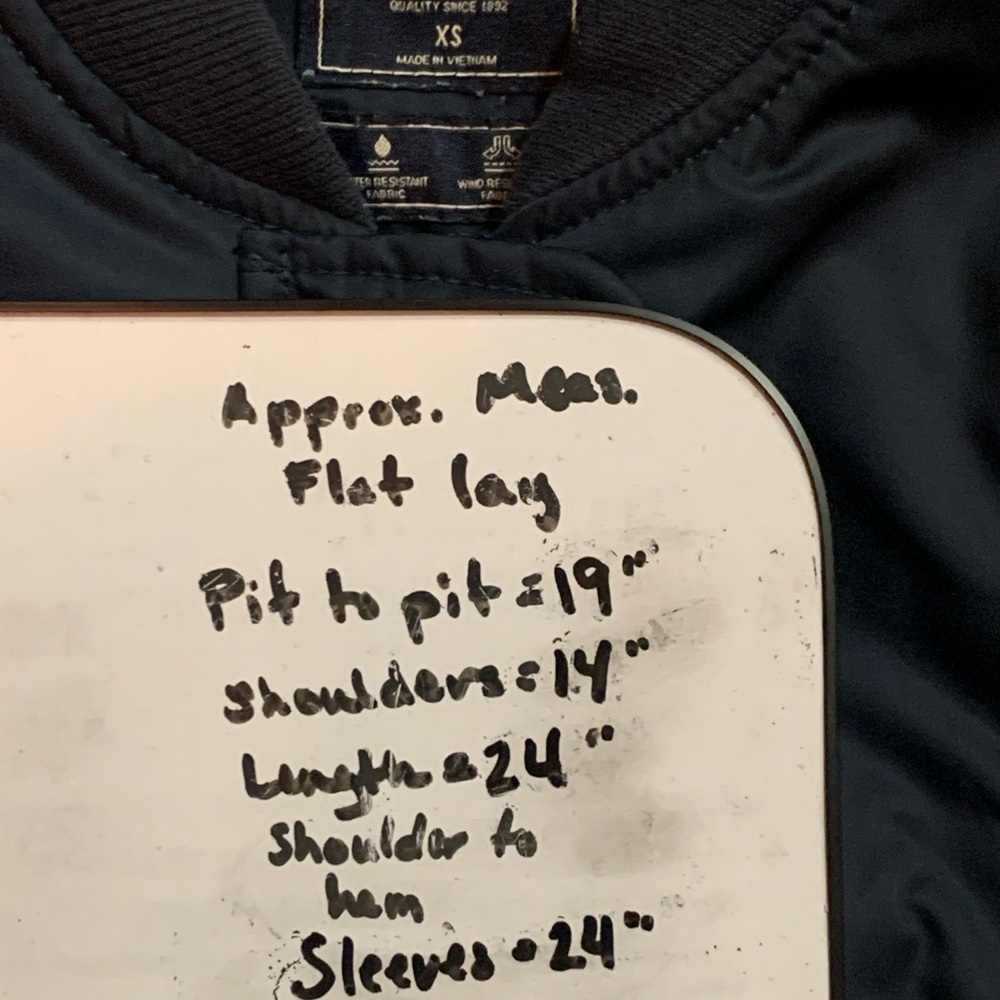 QUALITY SINCE 1892
XS
MADE IN VIETNAM
RESISTANT
FABRIC
WIND
Approx. Meas.
Flat lay
Pit to pit = 19"
Shoulders = 14"
Length = 24"
Shoulder to
hem
Sleeves = 24"